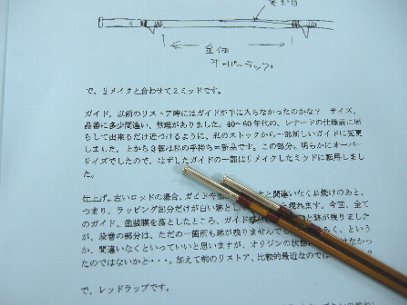 全体
オーバーラップ
で、2メイクと合わせて2ミッドです。
ガイド。以前のリストア時にはガイドが手に入らなかったのかな？ サイズ、
品番に多少間違い、無理がありました。40-60年代の、レナードの仕様表に照
らして出来るだけ近づけるように、私のストックから一部新しいガイドに変更
しました。上から3個は私の手持ちの新品です。この部分、明らかにオーバー
サイズでしたので、はずしたガイドの一部はリメイクしたミッドに転用しまし
た。
仕上げ。古いロッドの場合、ガイドや
と間違いなく日焼けのあと、
つまり、ラッピング部分だけが白い跡とし
れます。今回、全て
のガイド、塗装膜を落としたところ、ガイド
と跡が残りました
が、段巻の部分は、ただの一箇所も跡が残りませんで
なく、という
か、間違いなくといっていいと思いますが、オリジンの状態
はなかっ
たのではないかと・・・。加えて前のリストア、比較的最近なのでは
で、レッドラップです。